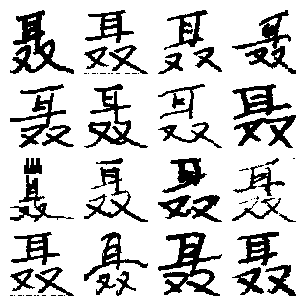 聂聂聂聂
聂聂聂聂
聂聂聂聂
聂聂聂聂